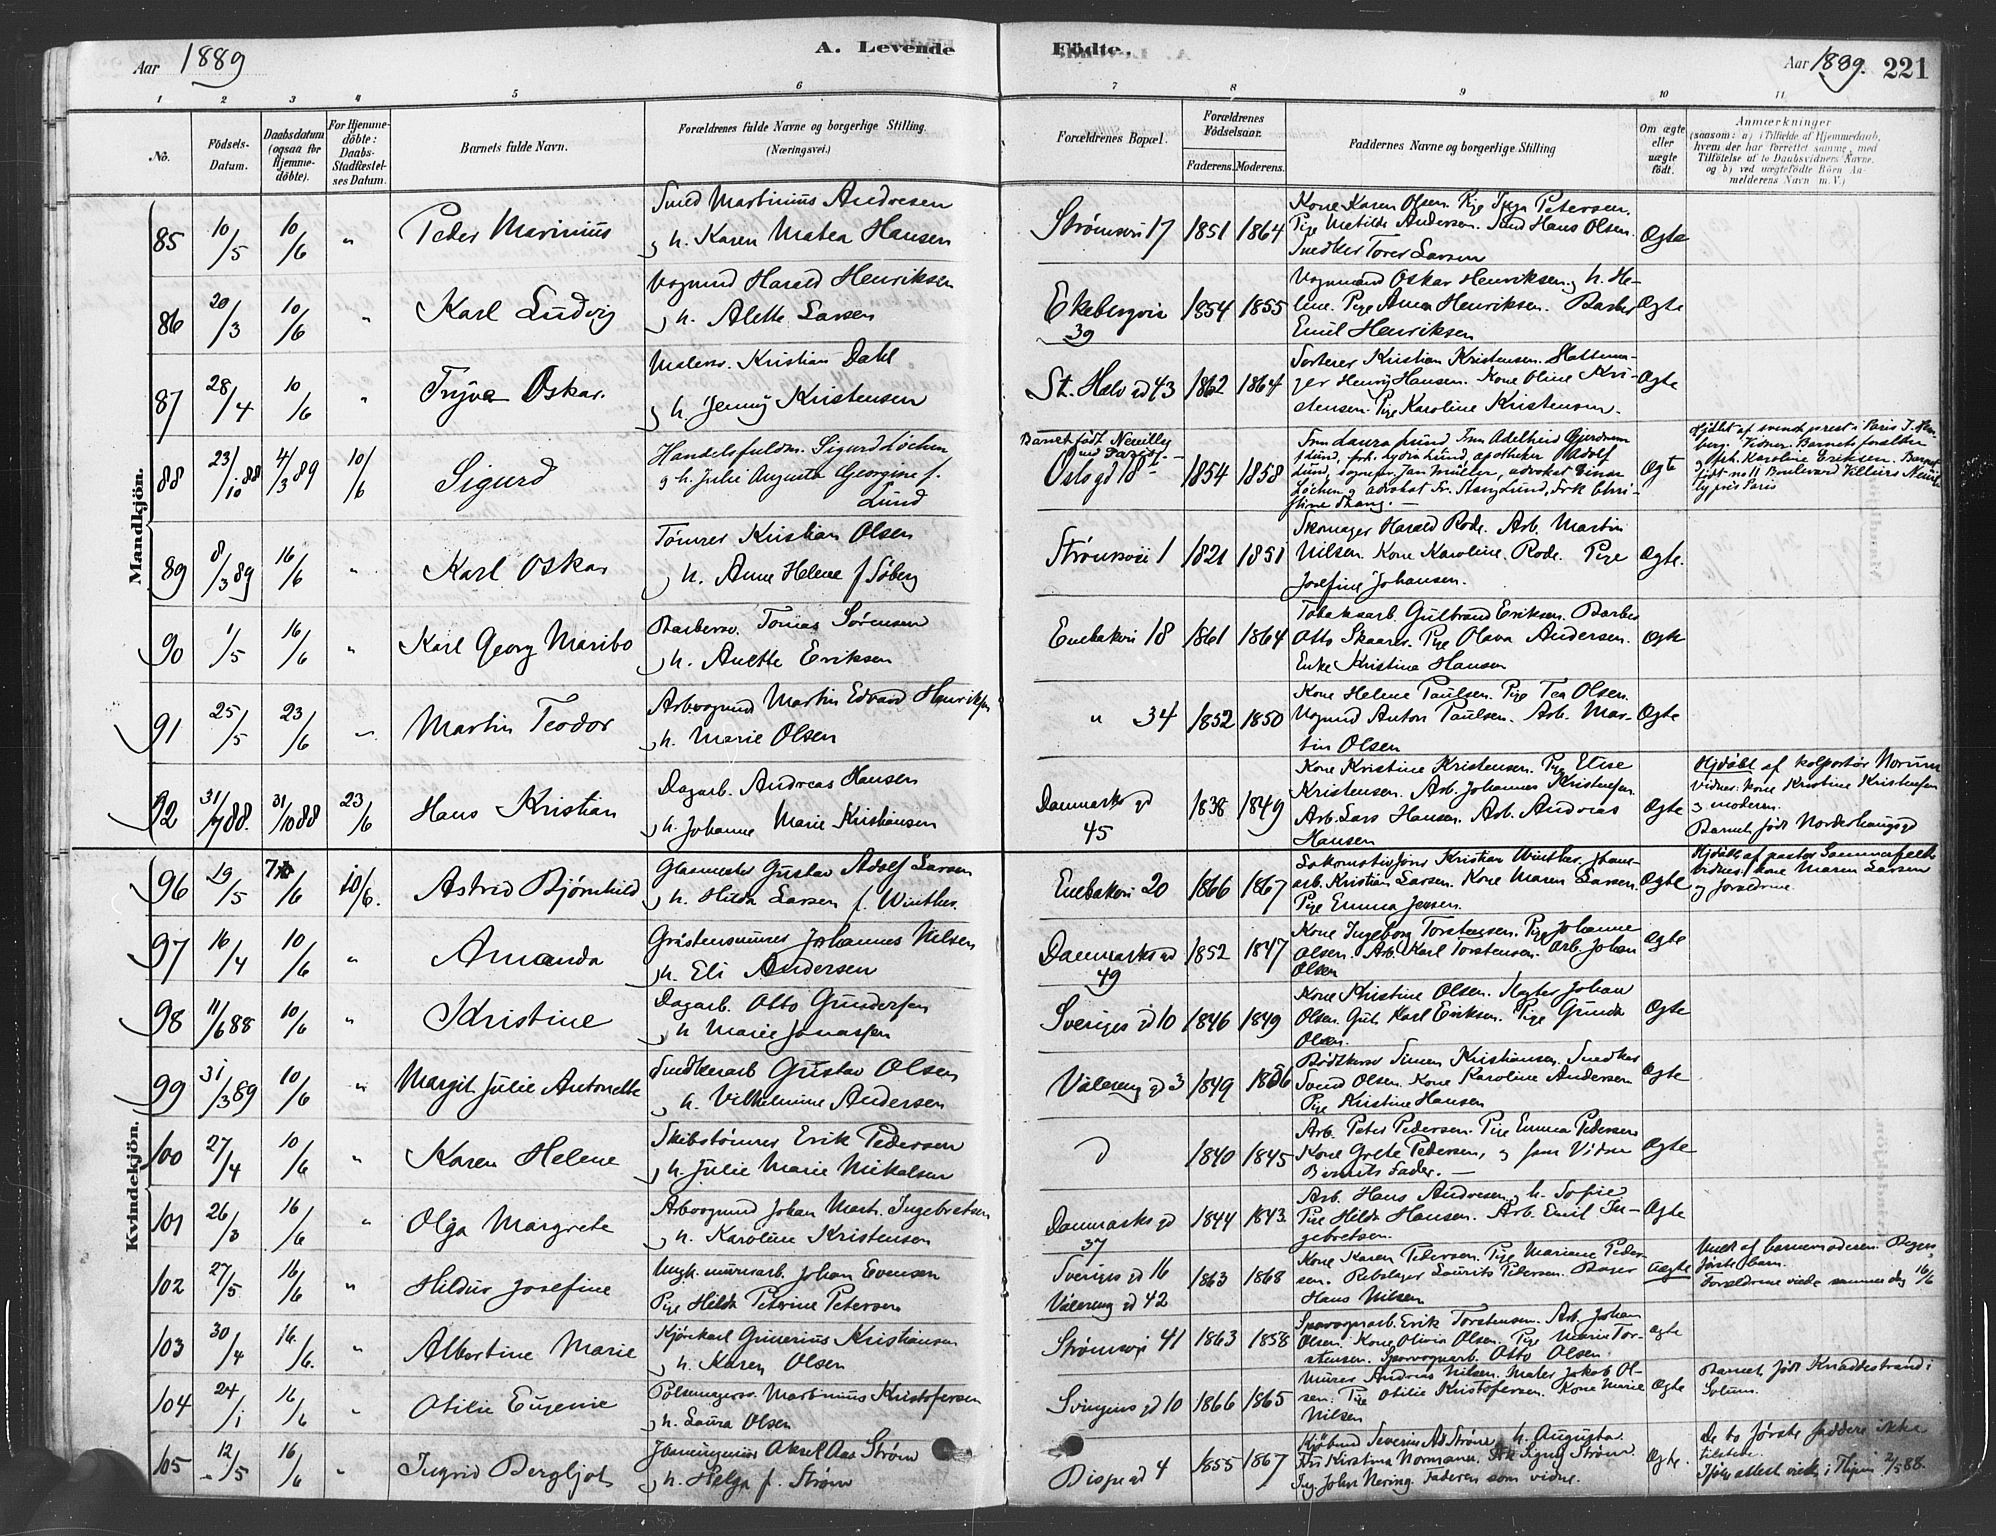 Aar 1889
A. Levende
Födte.
Aar 1889. 221
1 2 3 4 5 6 7 8 9 10 11
No.
Födsels-Datum.
Daabsdatum (ogsaa for Hjemme-döbte).
For Hjemme-döbte: Daabs-Stadfæstel-ses Datum.
Barnets fulde Navn.
Forældrenes fulde Navne og borgerlige Stilling. (Næringsvei.)
Forældrenes Bopæl.
Forældrenes Födselsaar.
Faderens. Moderens.
Faddernes Navne og borgerlige Stilling
Om ægte eller uægte födt.
Anmærkninger
(saasom: a) i Tilfælde af Hjemmedaab, hvem der har forrettet samme, med Tilföielse af to Daabsvidners Navne. og b) ved uægtefödte Börn An-melderens Navn m. V.)
Mandkjön.
85 10/5 10/6 " Peder Marinius
Smed Martinius Andresen
og h. Karen Matea Hansen
Strømsvei 17 1851 1864
Kone Karen Olsen. Pige Inga Petersen.
Pige Matilde Andersen. Smed Hans Olsen.
Snedker Torer Larsen
Ægte
86 20/3 10/6 " Karl Ludvig
Vognmd Harald Henriksen
og h. Alette Larsen
Ekebergvei 39 1854 1855
Vognmand Oskar Henriksen og h. He-
lene. Pige Anna Henriksen. Barber
Emil Henriksen
Ægte
87 28/4 10/6 " Trygve Oskar.
Malersv. Kristian Dahl
og h. Jenny Kristensen
St. Halv gd 43 1862 1864
Sorterer Kristian Kristensen. Hattema-
ger Henry Hansen. Kone Oline Kri-
stensen. Pige Karoline Kristensen.
Ægte
88 23/10 88 4/3 89 10/6 Sigurd
Handelsfuldm. Sigurd Løchen
og h. Julie Augusta Georgine f.
Lund
Barnet født Neuilly
ved Paris.
Oslogd 18 1854 1858
Fru Laura Lund. Fru Adelheid Gjerdrum
f. Lund, frk. Lydia Lund, apotheker Adolf
Lund, sogneprs. Jan Müller, advokat Einar
Løchen og advokat Fr. Stang Lund, Frk Chri-
stine Thang. —
Ægte
Hjdøbt af svensk prest i Paris
berg. Vidner Barnets forældre
og Karoline Eriksen. Barnet
født no 11 Boulevard Villiers Neuil-
ly près Paris
89 8/3 89 16/6 " Karl Oskar
Tömrer Kristian Olsen
og h. Anne Helene f Søberg
Strømsvei 1 1821 1851
Skomager Harald Rode. Arb. Martin
Nilsen. Kone Karoline Rode. Pige
Josefine Johansen.
Ægte.
90 1/5 16/6 " Karl Georg Maribo
Barbersv. Tomas Sørensen
og h. Anette Eriksen
Enebakvei 18 1861 1864
Tobaksarb. Gulbrand Eriksen. Barber
Otto Skaarer. Pige Olava Andersen.
Enke Kristine Hansen
Ægte
91 25/5 23/6 " Martin Teodor
Arbvognmd Martin Edvard Henriksen
og h. Marie Olsen
" 34 1852 1850
Kone Helene Paulsen. Pige Tea Olsen.
Vognmd Anton Paulsen. Arb. Mar-
tin Olsen
Ægte
92 31/7 88. 31/10 88 23/6 Hans Kristian
Dagarb. Andreas Hansen
og h. Johanne Marie Kristiansen
Danmarksgd 45 1838 1849
Kone Kristine Kristensen. Pige Elise
Kristensen. Arb. Johannes Kristensen.
Arb. Lars Hansen. Arb. Andreas
Hansen
Ægte
Hjdøbt af kolportør Norum
vidner: kone Kristine Kristensen
og moderen.
Barnet født Norderhougsgd
Kvindekjön.
96 19/5 7/6 10/6. Astrid Bjørnhild
Glasmester Gustav Adolf Larsen
og h. Hilda Larsen f. Winther.
Enebakvei 20 1866 1867
Lokomotivförer Kristian Winther.
arb. Kristian Larsen. Kone Maren Larsen.
Pige Emma Jensen.
Ægte
Hjdøbt af pastor Sommerfeldt
vidner: kone Maren Larsen
og forældrene
97 16/4 10/6 " Amanda
Gråstensmurer Johannes Nilsen
og h. Eli Andersen
Danmarksgd 49 1852 1847
Kone Ingeborg Torstensen. Pige Johanne
Olsen. Arb. Karl Torstensen. Arb. Johan
Olsen
Ægte
98 11/6 88 10/6 " Kristine
Dagarb. Otto Gundersen
og h Marie Jonassen
Sveriges gd 10 1846 1849
Kone Kristine Olsen. Johan
Olsen. Gut. Karl Eriksen. Pige Gunda
Olsen.
Ægte
99 31/3 89 10/6 " Margit Julie Antonette
Snedkerarb Gustav Olsen
og h. Vilhelmine Andersen
Vålereng gd 3 1849 1856
Bødkersv Simen Kristiansen. Snedker
Svend Olsen. Kone Karoline Andersen
Pige Kristine Hansen
Ægte
100 27/4 10/6 " Karen Helene
Skibstømrer Erik Pedersen
og h. Julie Marie Nikolsen
1840 1845
Arb. Peter Pedersen. Pige Emma Pedersen
Kone Grete Pedersen, og som Vidne
Barnets Fader. —
Ægte
101 26/3 16/6 " Olga Margrete
Arbvognmd Johan Mart. Ingebretsen
og h. Karoline Kristensen
Danmarksgd 37 1844 1843
Arb. Hans Andresen og h. Sofie
Pige Hilda Hansen. Arb. Emil In-
gebretsen.
Ægte
102 27/5 16/6 " Hildur Josefine
Ungk. murerarb. Johan Evensen
Pige Hilda Petrine Petersen
Sveriges gd 16
Vålereng gd 42 1863 1868
Kone Karen Pedersen. Pige Mariane Peder-
sen. Rebslager Laurits Pedersen. Bager
Hans Nilsen
Uægte
Meldt af barnemoderen. Begges
første barn.
Forældrene viede samme dag 16/6
103 30/4 16/6. " Albertine Marie
Kjørekarl Grinerius Kristiansen
og h. Karen Olsen
Strømsvei 41 1863 1858
Sporvognarb. Erik Torstensen. Arb. Johan
Olsen. Kone Olivia Olsen. Pige Marie Tor-
stensen. Sporvognarb. Otto Olsen
Ægte
104 24/1 16/6 " Otilie Eugenie
Pølsemagersv. Martinius Kristofersen
og h. Laura Olsen
Svingens gd 10 1866 1865
Murer Andreas Nilsen. Maler Jakob Ol-
sen. Pige Otilie Kristofersen. Kone Marie
Nilsen
Ægte
Barnet født Knaddestrand i
Solum.
105 12/5 16/6 " Ingrid Bergljot
Aksel Aas Strøm
og h. Helga f. Strøm
Bispegd 4 1855 1867
Kjøbmd Severin A Strøm og h. Augusta.
Frk Kirstina Normann. Frk Signe Strøm
Ing. John Nering. Faderen som vidne.
Ægte.
De to første faddere ikke
tilstede.
2/5 88.